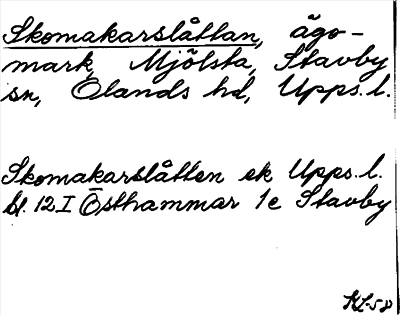 Skomakarslåttan, ägo-
mark, Mjölsta, Stavby
sn, Olands hd, Upps. l.
Skomakarslåtten ek Upps. l.
bl. 12 I Östhammar 1e Stavby